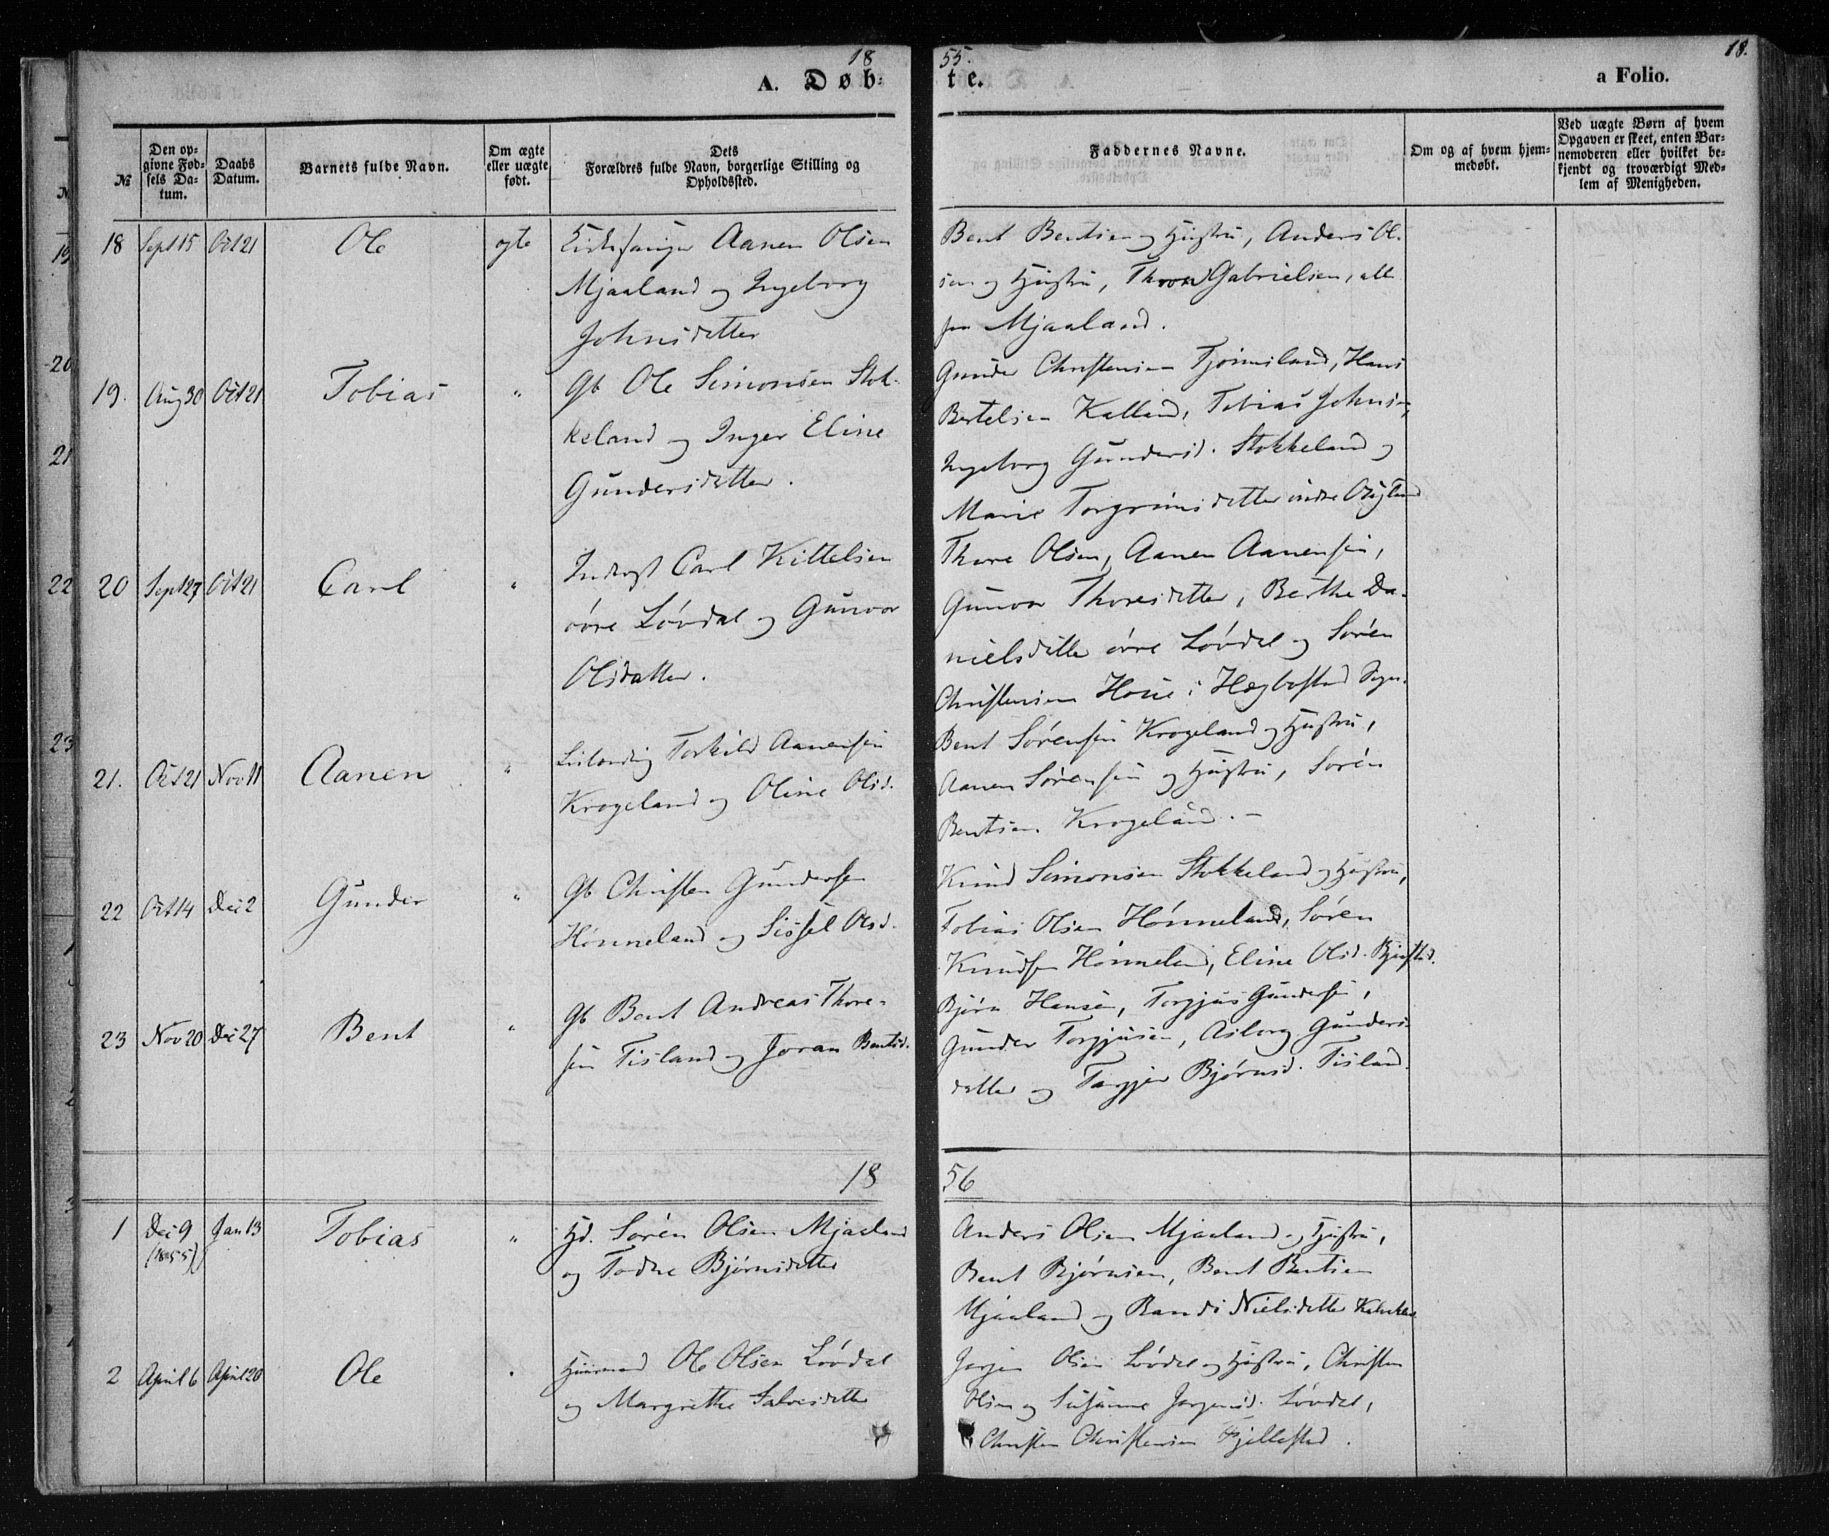 18 55. 18.
A. Døb- te. a Folio.
№
Den opgivne Fødsels Datum.
Daabs Datum.
Barnets fulde Navn.
Om ægte eller uægte født.
Dets Forældres fulde Navn, borgerlige Stilling og Opholdssted.
Faddernes Navne.
Om og af hvem hjemmedøbt.
Ved uægte Børn af hvem Opgaven er skeet, enten Barnemoderen eller hvilket bekjendt og troværdigt Medlem af Menigheden.
18 Sept 15 Oct 21 Ole ægte Kirkesanger Aanen Olsen
Mjaaland og Ingeborg
Johnsdatter
Bent Bentsen og Hustru, Anders Ol-
sen og Hustru, Thore Gabrielsen, alle
fra Mjaaland.
19. Aug 30 Oct 21 Tobias " Gb Ole Simonsen Stok-
keland og Inger Eline
Gundersdatter.
Gunder Christensen Tjómsland, Hans
Bertelsen Kalland, Tobias Johnsen,
Ingeborg Gundersd. Stokkeland og
Marie Torgrimsdatter indre
20 Sept 27 Oct 21 Carl " Carl Kittelsen
óvre Lóvdal og Gunvor
Olsdatter.
Thore Olsen, Aanen Aanensen,
Gunvor Thoresdatter, Berthe Da-
nielsdatter óvre Lóvdal og Sóren
Christensen Houe i Hægbostad Sogn.
21. Oct 21 Nov 11 Aanen " Torkild Aanensen
Krogeland og Oline Olsd.
Bent Sórensen Krogeland og Hustru,
Aanen Sórensen og Hustru, Sóren
Bentsen Krogeland. -
22 Oct 14 Dec 2 Gunder " Gb Christen Gundersen
Hónneland og Sissel Olsd.
Knud Simonsen Stokkeland og Hustru,
Tobias Olsen Hónneland, Sóren
Knudsen Hónneland, Eline Olsd.
23 Nov 20 Dec 27 Bent " Gb Bent Andreas Thore-
sen Tisland og Joran Bentsd.
Bjórn Hansen, Torgjus Gundersen,
Gunder Torgjusen, Asborg Gunders-
datter og Taagjer Bjórnsd. Tisland.
18 56
1 Dec 9 Jan 13 Tobias " Hd. Sóren Olsen Mjaaland
(1855)
og Todne Bjórnsdatter
Anders Olsen Mjaaland og Hustru,
Bent Bjórnsen, Bent Bentsen
Mjaaland og Randi Nielsdatter
2 April 6 April 20 Ole " Huusmand Ole Olsen Lóvdal
og Margrethe Salvesdatter
Jorgen Olsen Lóvdal og Hustru, Christen
Olsen og Susanne Jorgensd. Lóvdal,
Christen Christensen Fjellestad.